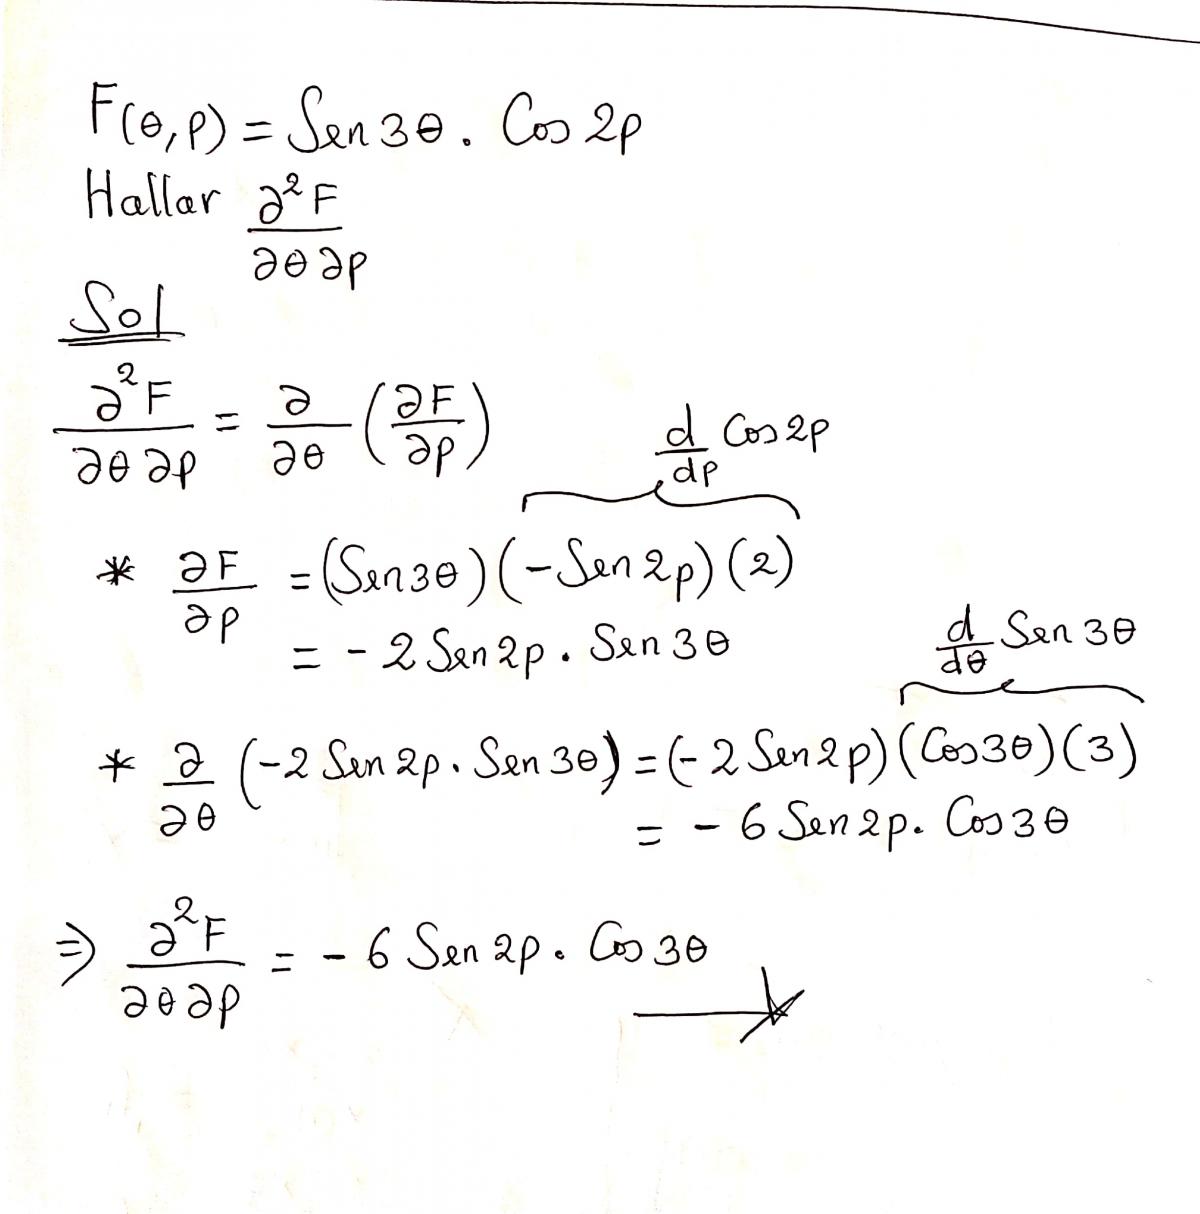 F(θ,ρ) = Sen 3θ . Cos 2ρ
Hallar ∂²F/∂θ∂ρ
Sol
∂²F/∂θ∂ρ = ∂/∂θ (∂F/∂ρ)
d/dρ Cos 2ρ
* ∂F/∂ρ = (Sen 3θ)(-Sen 2ρ)(2)
= - 2 Sen 2ρ . Sen 3θ
d/dθ Sen 3θ
* ∂/∂θ (-2 Sen 2ρ . Sen 3θ) = (-2 Sen 2ρ)(Cos 3θ)(3)
= - 6 Sen 2ρ . Cos 3θ
⇒ ∂²F/∂θ∂ρ = - 6 Sen 2ρ . Cos 3θ